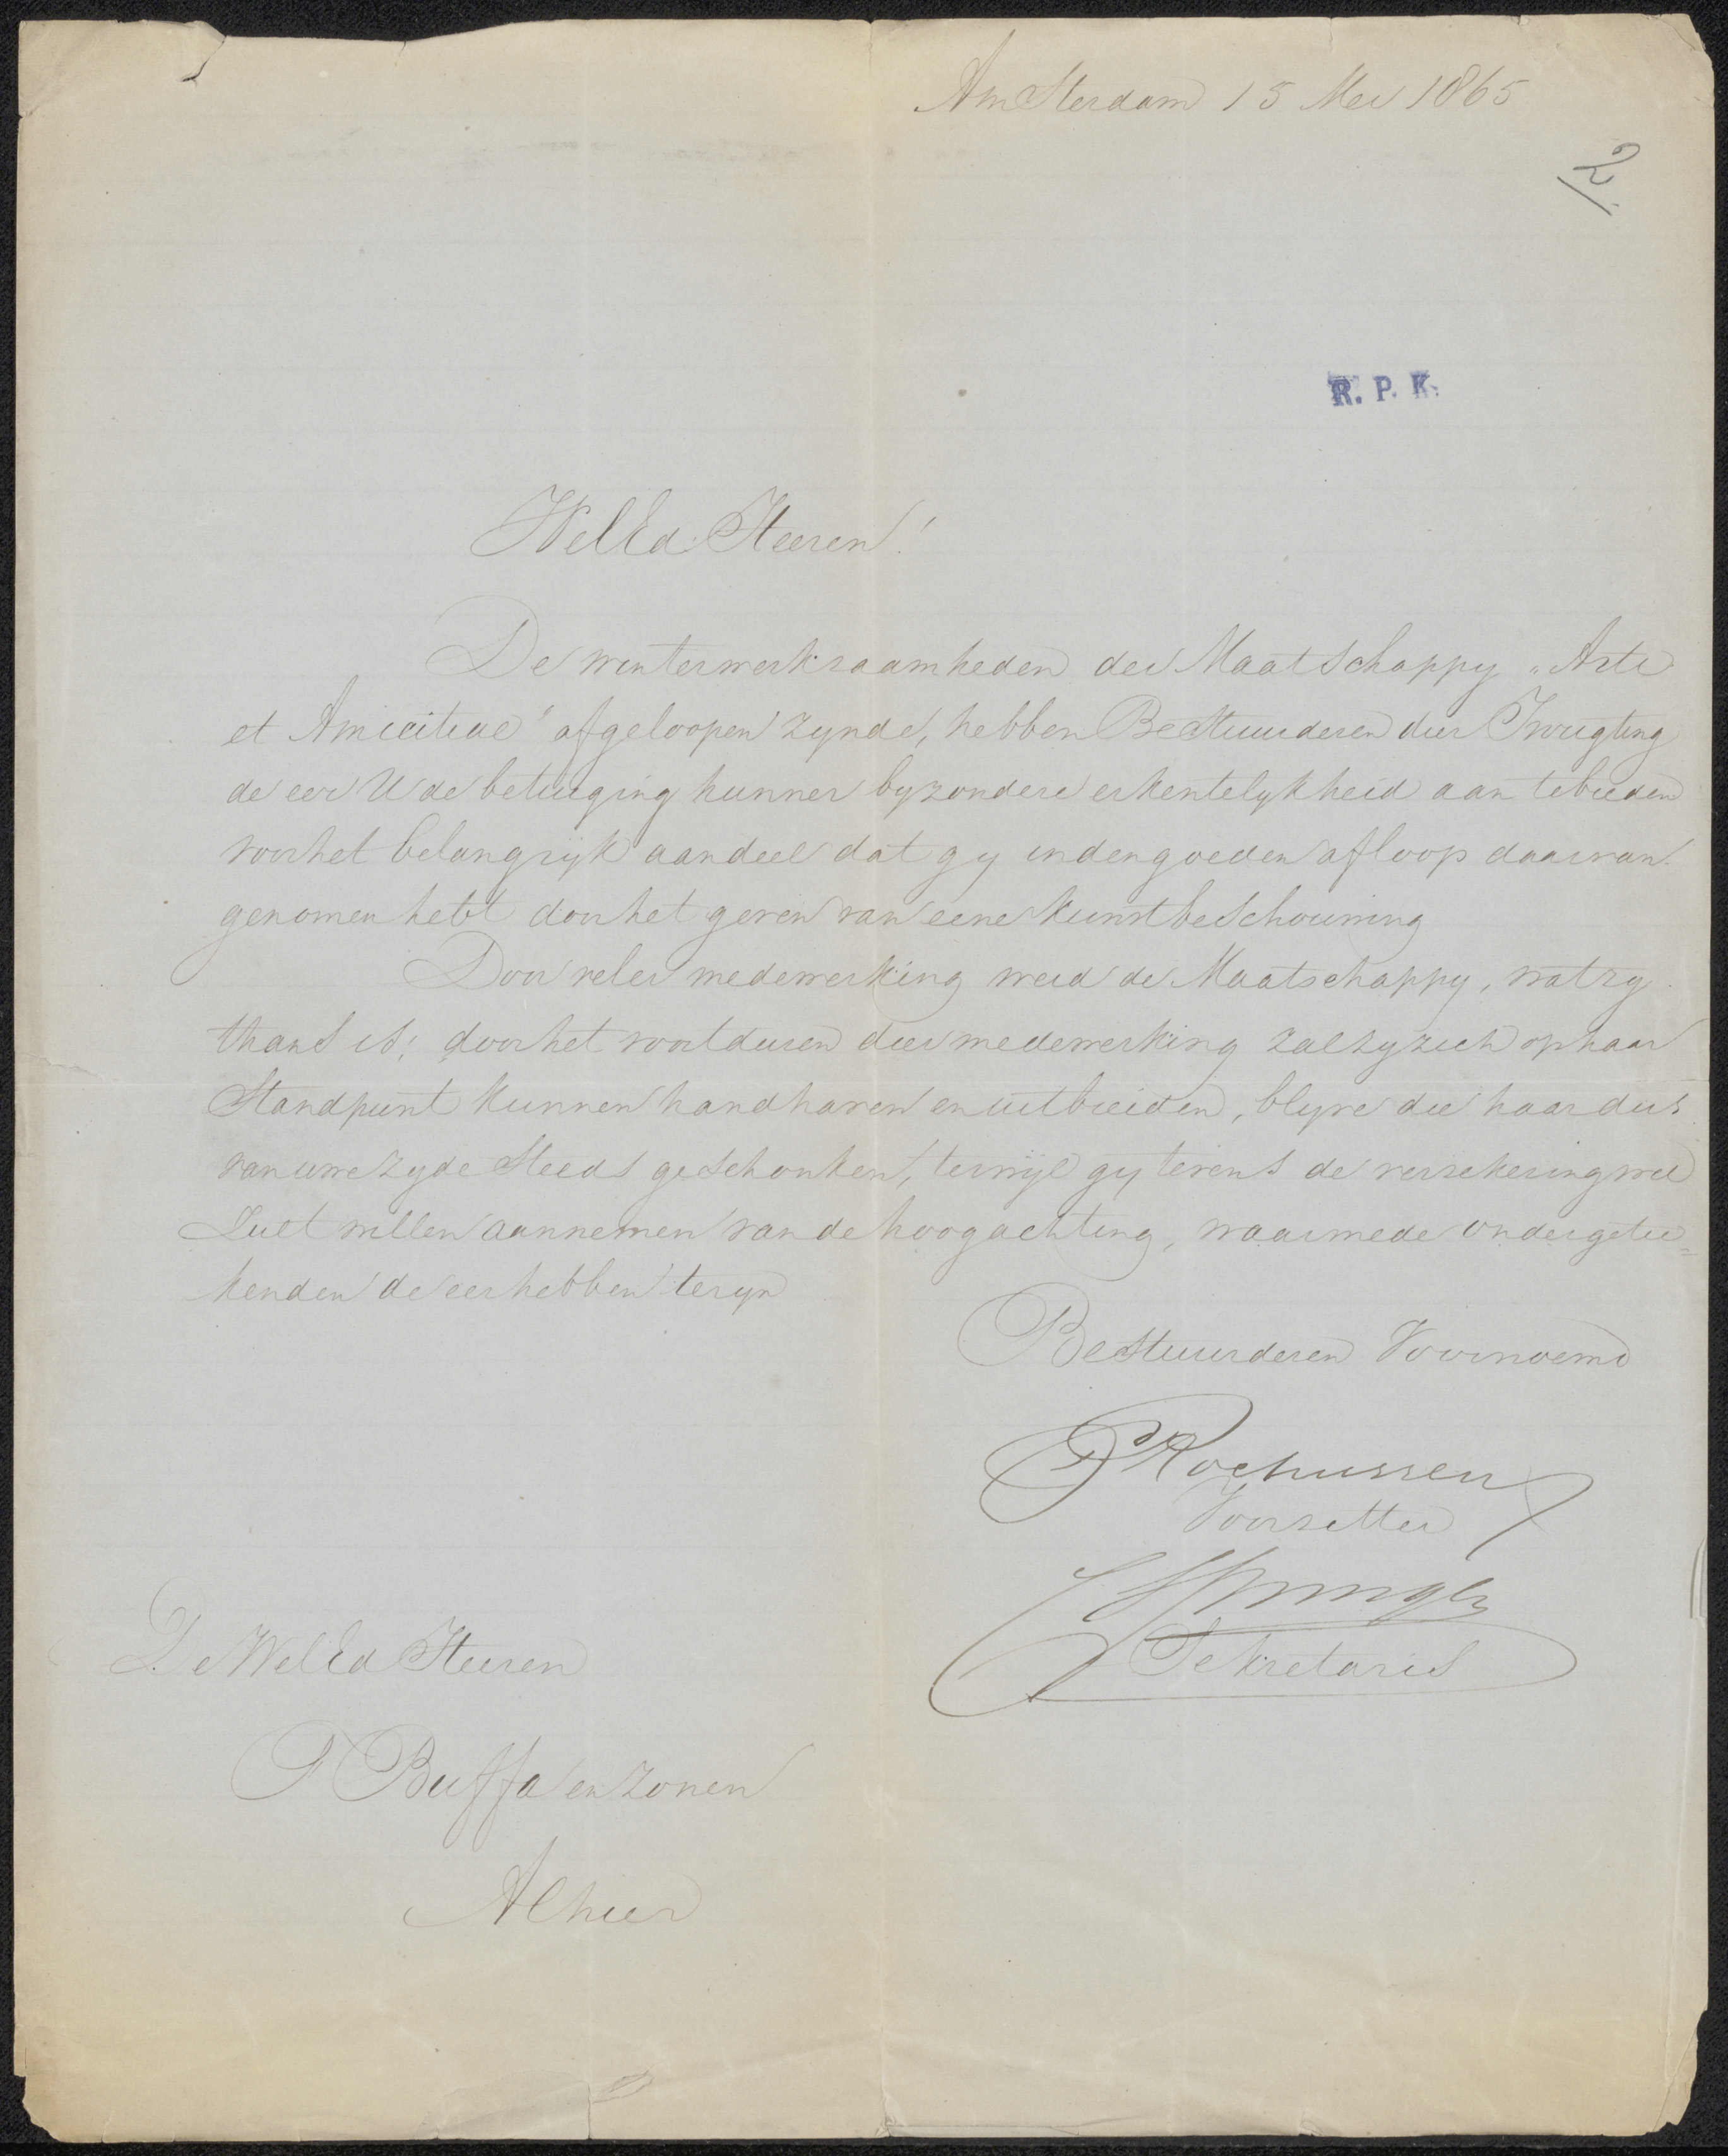 Amsterdam 15 Mei 1865
12
R. P. K.
WelEd. Heeren!
De winterwerkzaamheden der Maatschappy „Arti
et Amicitiae" afgeloopen zynde, hebben Bestuurderen dier Inrigting
de eer U de betuiging hunner byzondere erkentelykheid aan te bieden
voor het belangrijk aandeel dat gy in den goeden afloop daarvan
genomen hebt door het geven van eene Kunstbeschouwing
Door veler medewerking werd de Maatschappy, wat zy
thans is; door het voortduren dier medewerking zal zy zich op haar
Standpunt kunnen handhaven en uitbreiden, blyve die haar dus
van uwe zyde steeds geschonken, terwijl gy tevens de verzekering wel
Zult willen aannemen van de hoogachting, waarmede ondergetee=
kenden de eer hebben te zyn
Bestuurderen Voornoemd
Rochussen
Voorzitter
Springer
Sekretaris
De WelEd Heeren
P Buffa en Zonen
Alhier